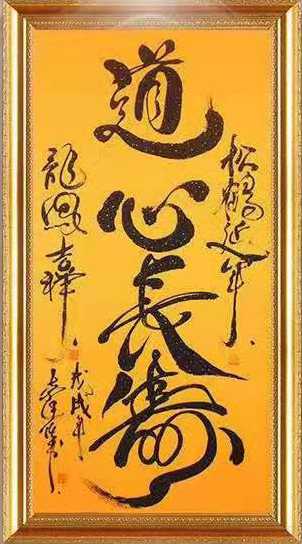 松鶴延年
道心長壽
龍鳳吉祥
戊戌年